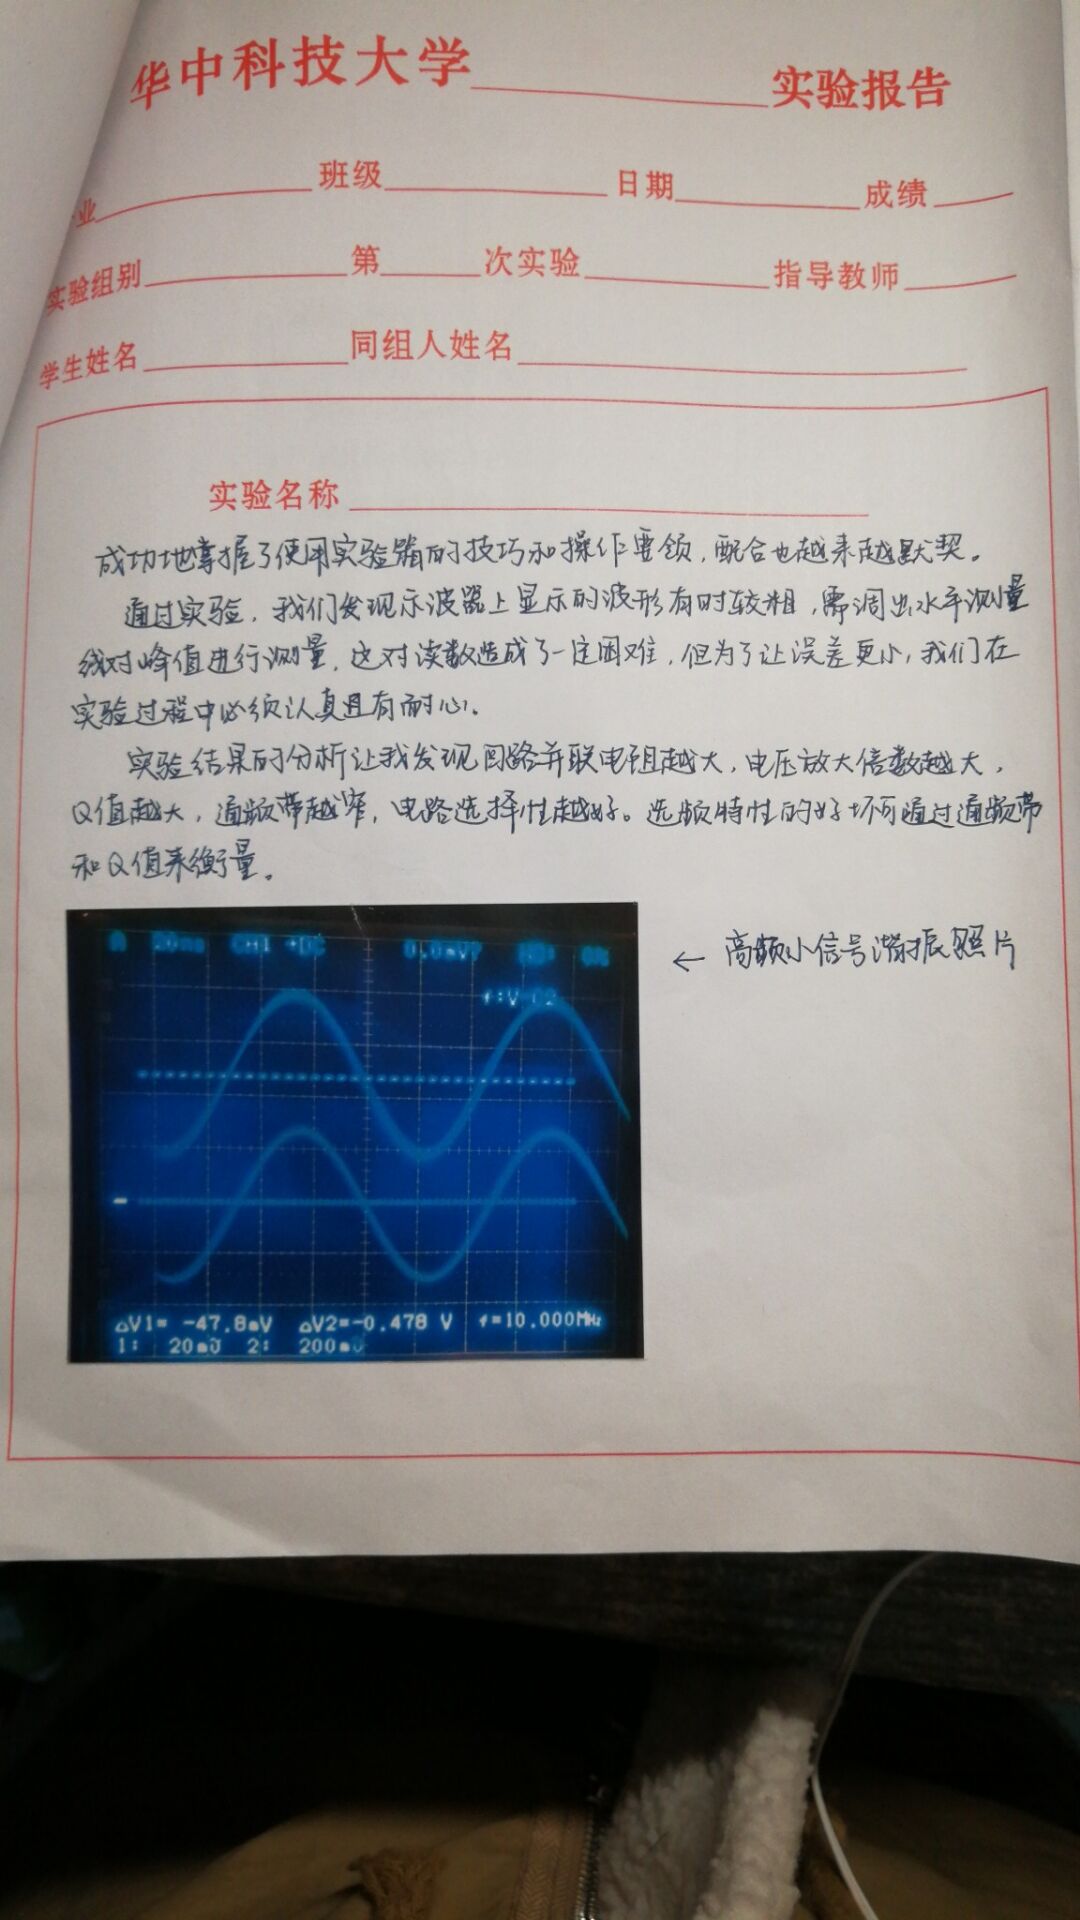 华中科技大学 实验报告
业 班级 日期 成绩
实验组别 第 次实验 指导教师
学生姓名 同组人姓名
实验名称
成功地掌握了使用实验器的技巧和操作要领，配合也越来越默契。
通过实验，我们发现示波器上显示的波形有时较粗，需调出水平测量
线对峰值进行测量，这对读数造成了一定困难，但为了让误差更小，我们在
实验过程中必须认真且有耐心。
实验结果的分析让我发现回路并联电阻越大，电压放大倍数越大，
Q值越大，通频带越窄，电路选择性越好。选频特性的好坏可通过通频带
和Q值来衡量。
← 高频小信号谐振照片
A 20ns CH1
f:V-C2
△V1= -47.8mV △V2=-0.478 V f=10.000MHz
1: 20mV 2: 200m